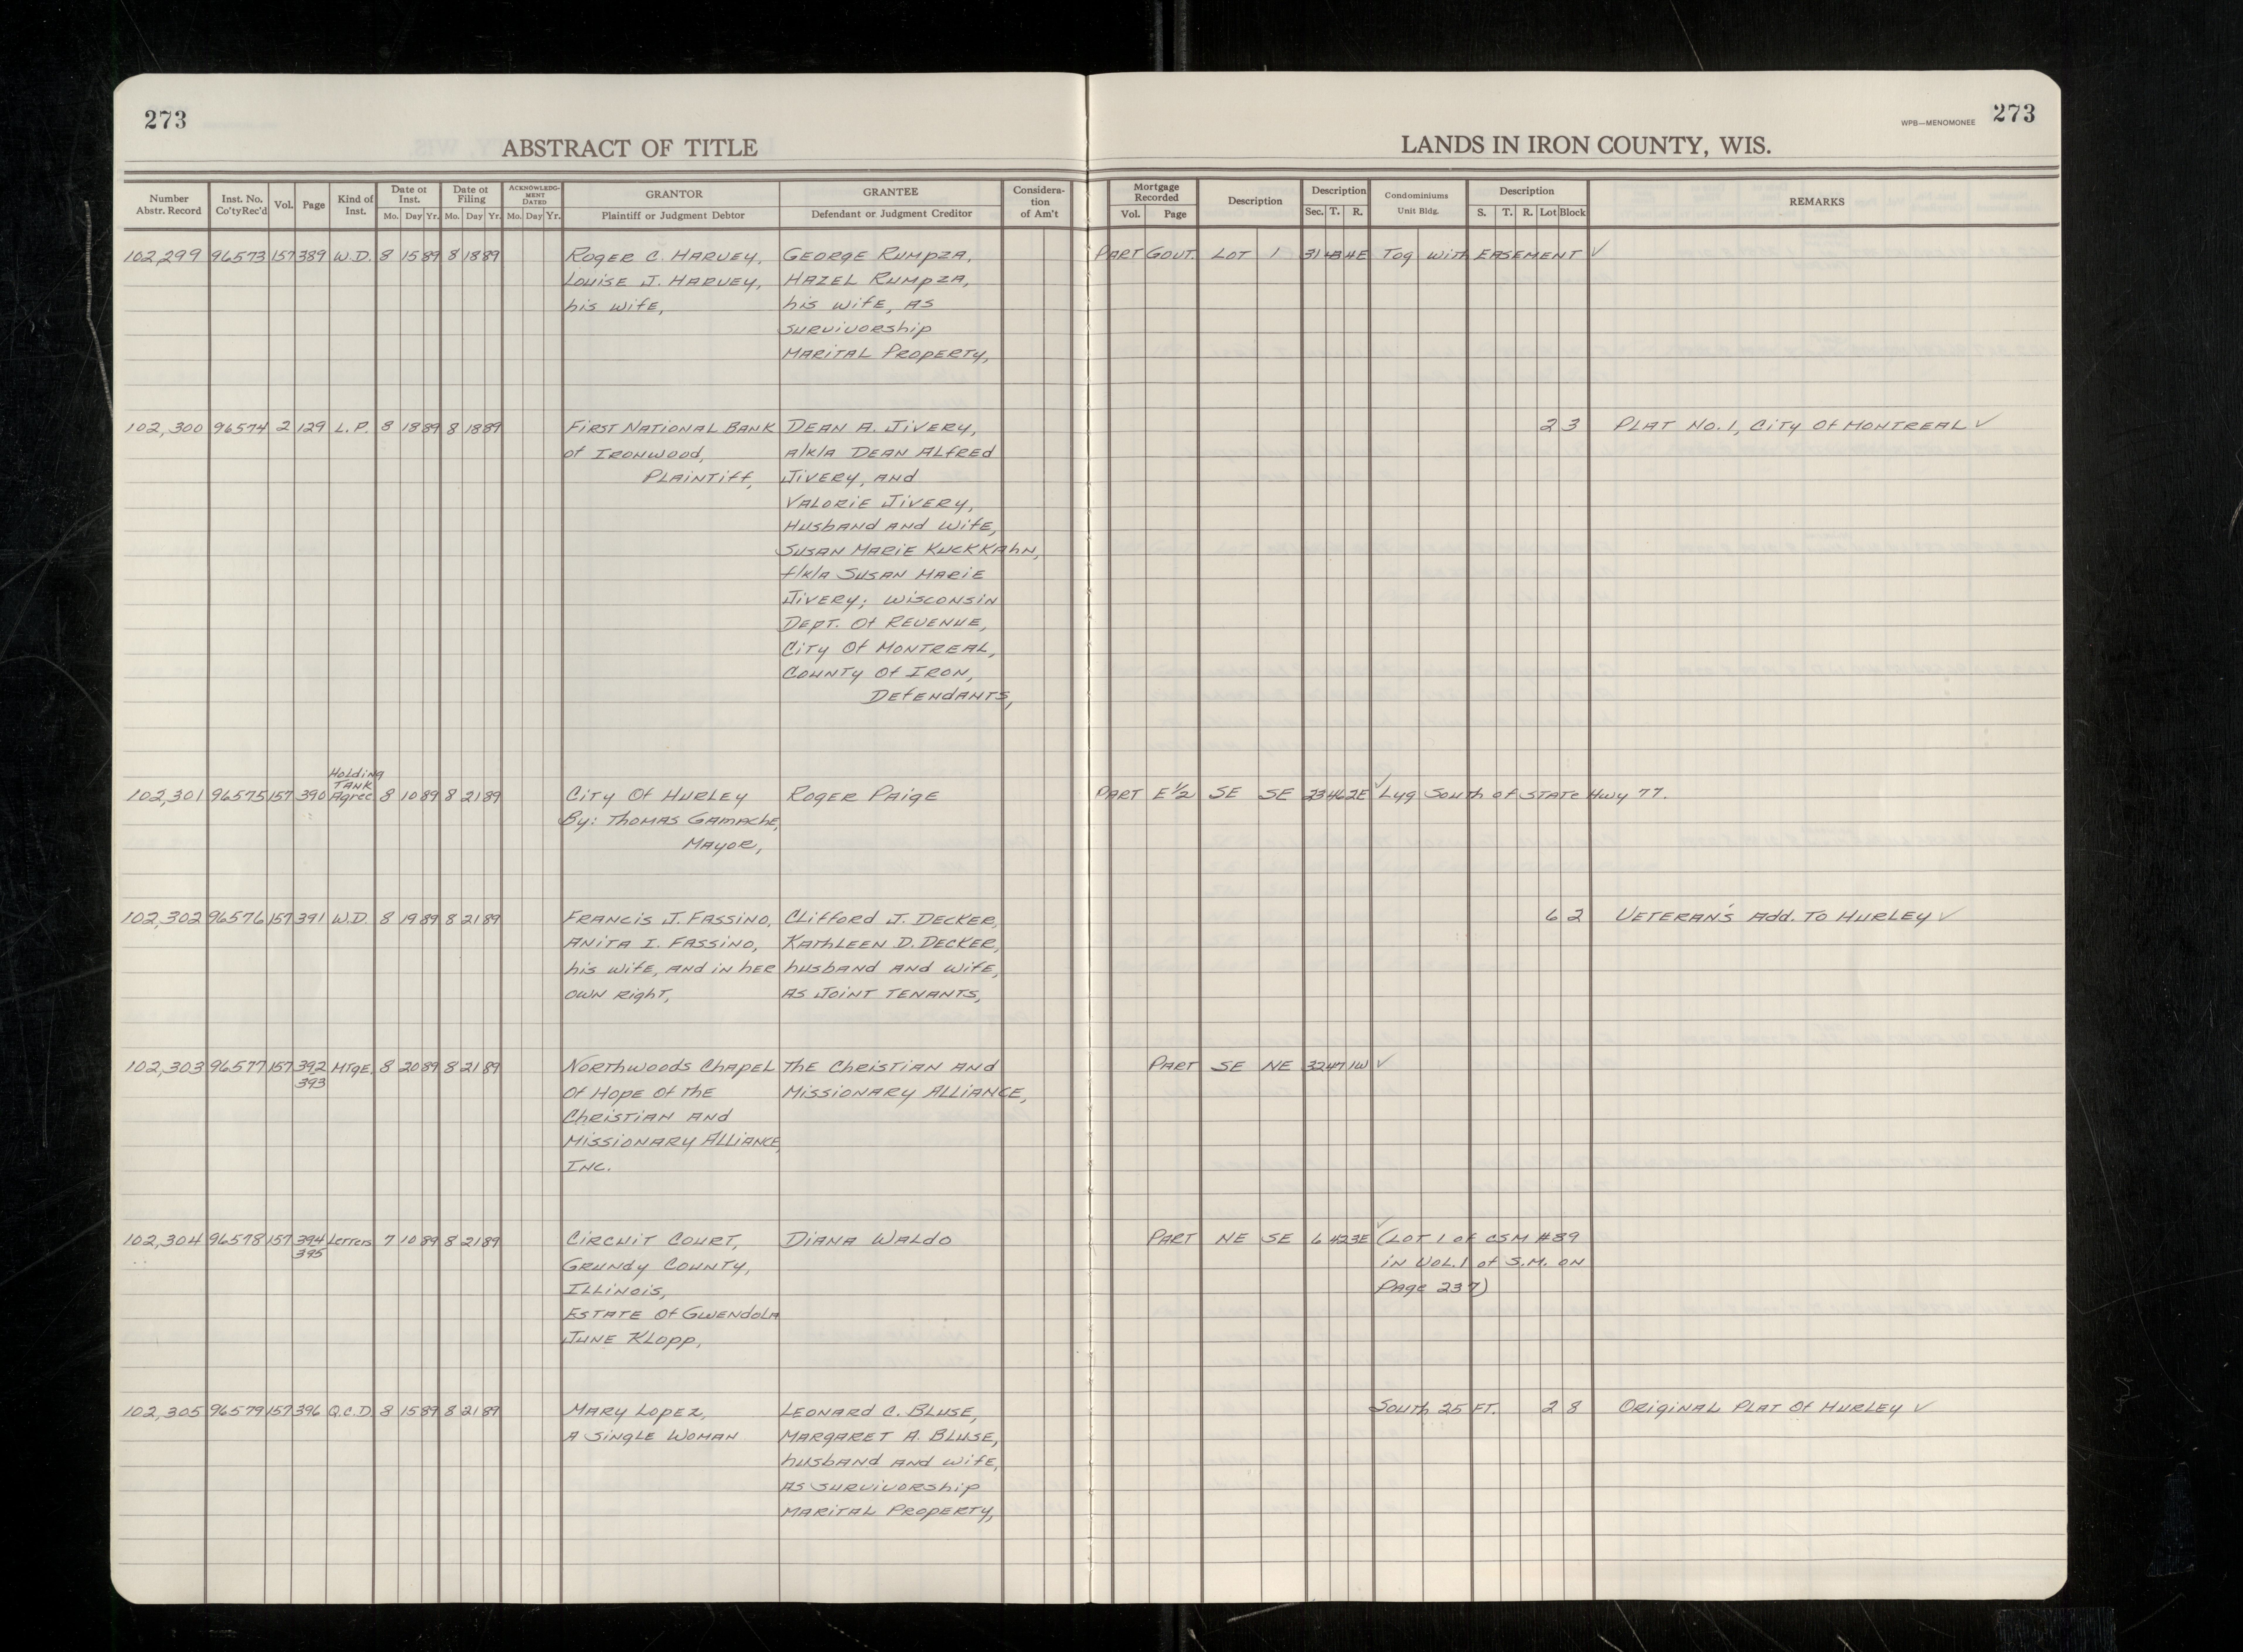 273
ABSTRACT OF TITLE
LANDS IN IRON COUNTY, WIS.
WPB—MENOMONEE 273
Number Abstr. Record
Inst. No. Co'ty Rec'd
Vol.
Page
Kind of Inst.
Date of Inst.
Mo. Day Yr.
Date of Filing
Mo. Day Yr.
ACKNOWLEDGMENT DATED
Mo. Day Yr.
GRANTOR
Plaintiff or Judgment Debtor
GRANTEE
Defendant or Judgment Creditor
Consideration of Am't
Mortgage Recorded
Vol. Page
Description
Description
Sec. T. R.
Condominiums
Unit Bldg.
Description
S. T. R. Lot Block
REMARKS
102,299 96573 157 389 W.D. 8 15 89 8 18 89 ROGER C. HARVEY, GEORGE RUMPZA, PART GOVT. LOT 1 31 43 4E Tog with EASEMENT ✓
LOUISE J. HARVEY, HAZEL RUMPZA,
his wife, his wife, AS
survivorship
MARITAL PROPERTY,
102,300 96574 2 129 L.P. 8 18 89 8 18 89 FIRST NATIONAL BANK DEAN A. JIVERY, 2 3 PLAT No. 1, CITY OF MONTREAL ✓
of IRONWOOD, a/k/a DEAN ALFRED
PLAINTIFF, JIVERY, AND
VALORIE JIVERY,
HUSBAND AND WIFE,
SUSAN MARIE KUCKKAHN,
f/k/a SUSAN MARIE
JIVERY; WISCONSIN
DEPT. OF REVENUE,
CITY OF MONTREAL,
COUNTY OF IRON,
DEFENDANTS,
Holding
TANK
102,301 96575 157 390 Agree 8 10 89 8 21 89 CITY OF HURLEY ROGER PAIGE PART E½ SE SE 23 46 2E ✓ Lyg South of STATE Hwy 77.
By: THOMAS GAMACHE,
MAYOR,
102,302 96576 157 391 W.D. 8 19 89 8 21 89 FRANCIS J. FASSINO, CLIFFORD J. DECKER, 6 2 VETERAN'S Add. TO HURLEY ✓
ANITA I. FASSINO, KATHLEEN D. DECKER,
his wife, AND IN HER husband AND WIFE,
OWN Right, AS JOINT TENANTS,
102,303 96577 157 392 MTGE. 8 20 89 8 21 89 NORTHWOODS CHAPEL THE CHRISTIAN AND PART SE NE 32 47 1W ✓
393 OF HOPE OF THE MISSIONARY ALLIANCE,
CHRISTIAN AND
MISSIONARY ALLIANCE,
INC.
102,304 96578 157 394 Letters 7 10 89 8 21 89 CIRCUIT COURT, DIANA WALDO PART NE SE 6 42 3E ✓ (LOT 1 of CSM #89
395 GRUNDY COUNTY, IN VOL. 1 of S.M. ON
ILLINOIS, PAGE 237)
ESTATE OF GWENDOLA
JUNE KLOPP,
102,305 96579 157 396 Q.C.D 8 15 89 8 21 89 MARY LOPEZ, LEONARD C. BLUSE, SOUTH 25 FT. 2 8 ORIGINAL PLAT OF HURLEY ✓
A SINGLE WOMAN MARGARET A. BLUSE,
husband AND WIFE,
AS SURVIVORSHIP
MARITAL PROPERTY,